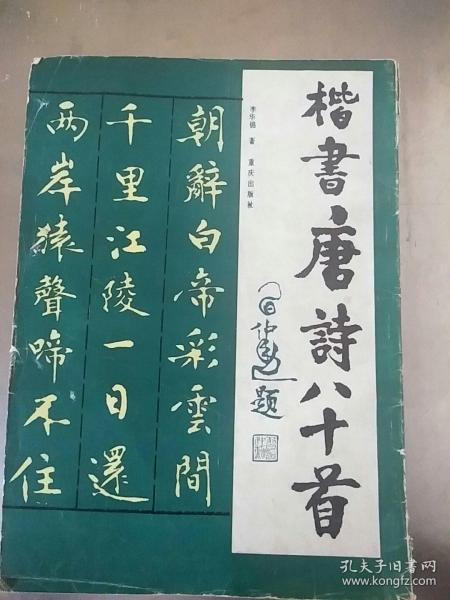 楷書唐詩八十首
李华锦 著 重庆出版社
題
朝辭白帝彩雲間
千里江陵一日還
两岸猿聲啼不住
孔夫子旧书网
www.kongfz.com